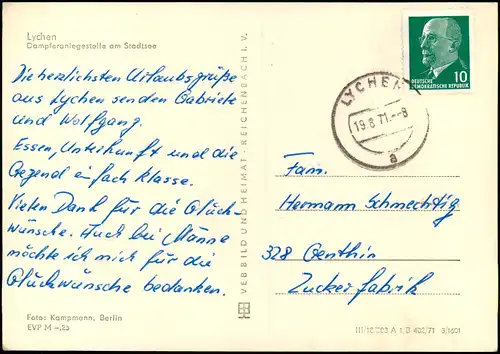 Lychen
Dampferanlegestelle am Stadtsee
Die herzlichsten Urlaubsgrüße
aus Lychen senden Gabriele
und Wolfgang.
Essen, Unterkunft und die
Gegend einfach klasse.
Vielen Dank für die Glück-
wünsche. Auch bei Männe
möchte ich mich für die
Glückwünsche bedanken.
Foto: Kampmann, Berlin
EVP M -,25
VEB BILD UND HEIMAT · REICHENBACH I. V.
LYCHEN
19.8.71.-8
a
10
DEUTSCHE
DEMOKRATISCHE REPUBLIK
Fam.
Hermann Schmechtig
328 Genthin
Zuckerfabrik
A 1/B 402/71